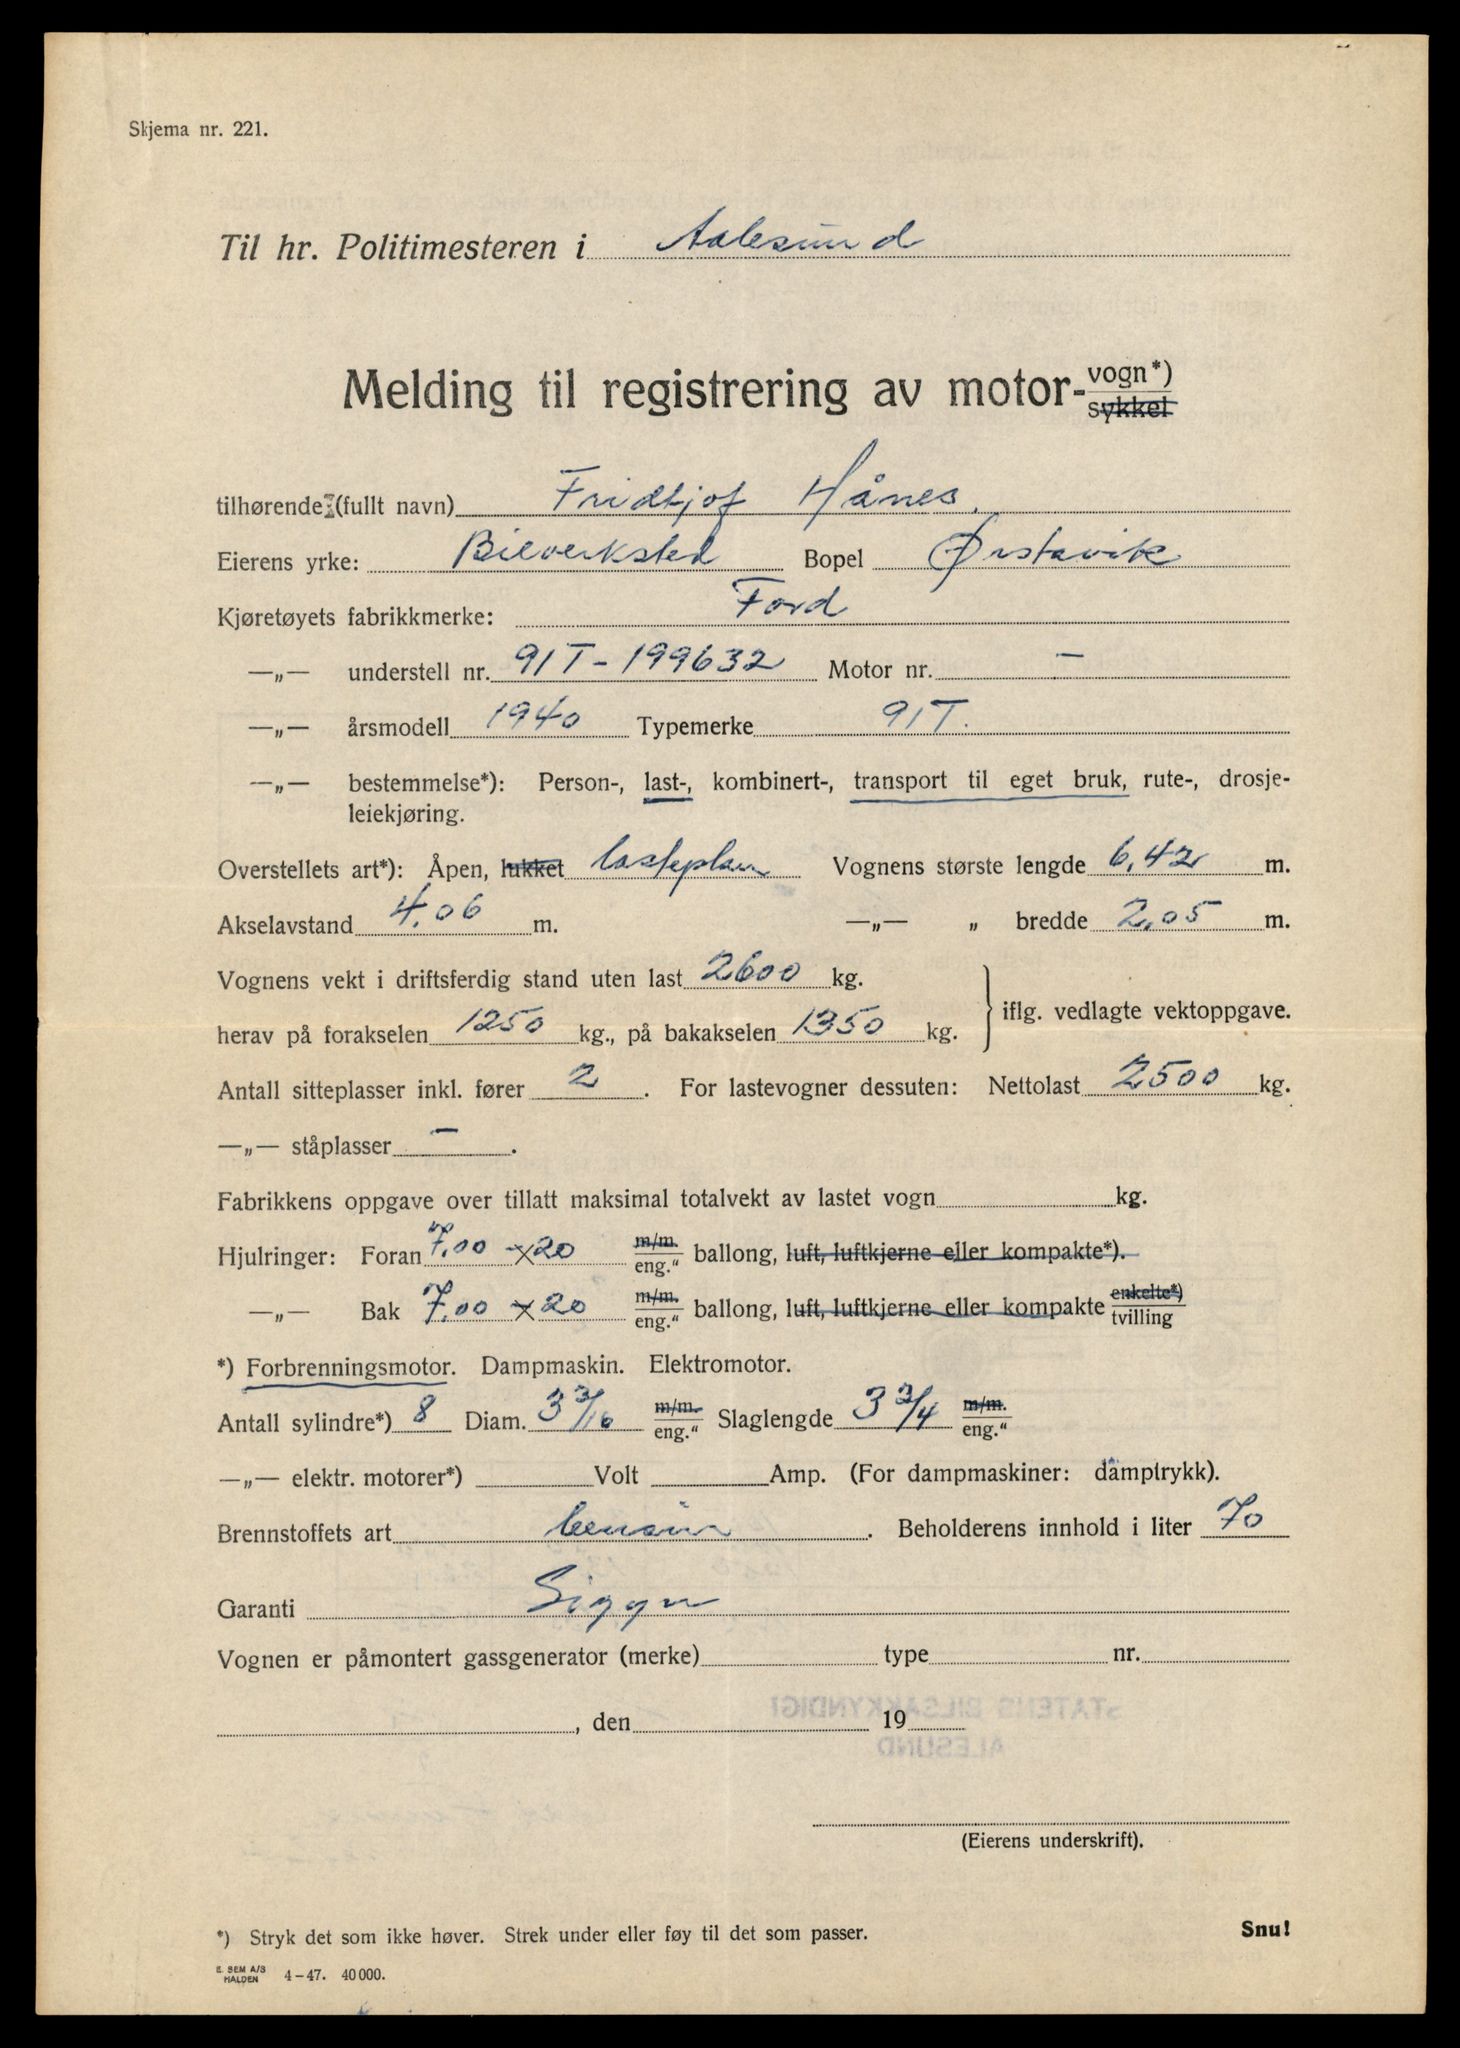 Skjema nr. 221.
Til hr. Politimesteren i Aalesund
Melding til registrering av motor-vogn*)
sykkel
tilhørende (fullt navn) Fridtjof Hånes.
Eierens yrke: Bilverksted Bopel Ørstavik
Kjøretøyets fabrikkmerke: Ford
—„— understell nr. 91T-199632 Motor nr. —
—„— årsmodell 1940 Typemerke 91T.
—„— bestemmelse*): Person-, last-, kombinert-, transport til eget bruk, rute-, drosje-
leiekjøring.
Overstellets art*): Åpen, lukket lasteplan Vognens største lengde 6,42 m.
Akselavstand 4.06 m. —„— „ bredde 2,05 m.
Vognens vekt i driftsferdig stand uten last 2600 kg.
herav på forakselen 1250 kg., på bakakselen 1350 kg. iflg. vedlagte vektoppgave.
Antall sitteplasser inkl. fører 2. For lastevogner dessuten: Nettolast 2500 kg.
—„— ståplasser —.
Fabrikkens oppgave over tillatt maksimal totalvekt av lastet vogn kg.
Hjulringer: Foran 7.00 x 20 m/m. eng.“ ballong, luft, luftkjerne eller kompakte*).
—„— Bak 7.00 x 20 m/m. eng.“ ballong, luft, luftkjerne eller kompakte enkelte*) tvilling
*) Forbrenningsmotor. Dampmaskin. Elektromotor.
Antall sylindre*) 8 Diam. 3 3/16 m/m. eng.“ Slaglengde 3 3/4 m/m. eng.“
—„— elektr. motorer*) Volt Amp. (For dampmaskiner: damptrykk).
Brennstoffets art bensin. Beholderens innhold i liter 70
Garanti Sigyn
Vognen er påmontert gassgenerator (merke) type nr.
, den 19
(Eierens underskrift).
*) Stryk det som ikke høver. Strek under eller føy til det som passer. Snu!
E. SEM A/S
HALDEN 4-47. 40 000.